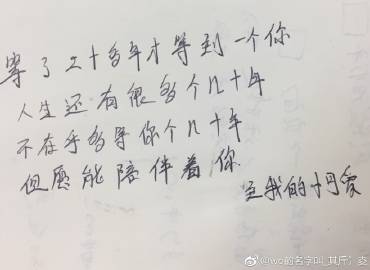 等了二十多年才等到一个你
人生还有很多个几十年
不在乎多等你个几十年
但愿能陪伴着你
至我的十月爱
@wo的名字叫_其斤